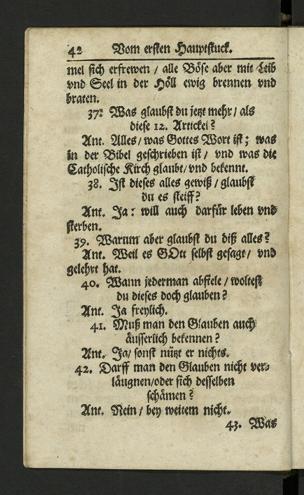 42 Vom ersten Hauptstuck.
mel sich erfrewen / alle Böse aber mit Leib
vnd Seel in der Höll ewig brennen vnd
braten.
37. Was glaubst du jetzt mehr / als
diese 12. Artickel?
Ant. Alles / was Gottes Wort ist; was
in der Bibel geschrieben ist / vnd was die
Catholische Kirch glaubt / vnd bekennt.
38. Ist dieses alles gewiß / glaubst
du es steiff?
Ant. Ja: will auch darfür leben vnd
sterben.
39. Warum aber glaubst du diß alles?
Ant. Weil es GOtt selbst gesagt / vnd
gelehrt hat.
40. Wann jederman abfiele / woltest
du dieses doch glauben?
Ant. Ja freylich.
41. Muß man den Glauben auch
äusserlich bekennen?
Ant. Ja / sonst nützt er nichts.
42. Darff man den Glauben nicht ver-
läugnen / oder sich desselben
schämen?
Ant. Nein / bey weitem nicht.
43. Was